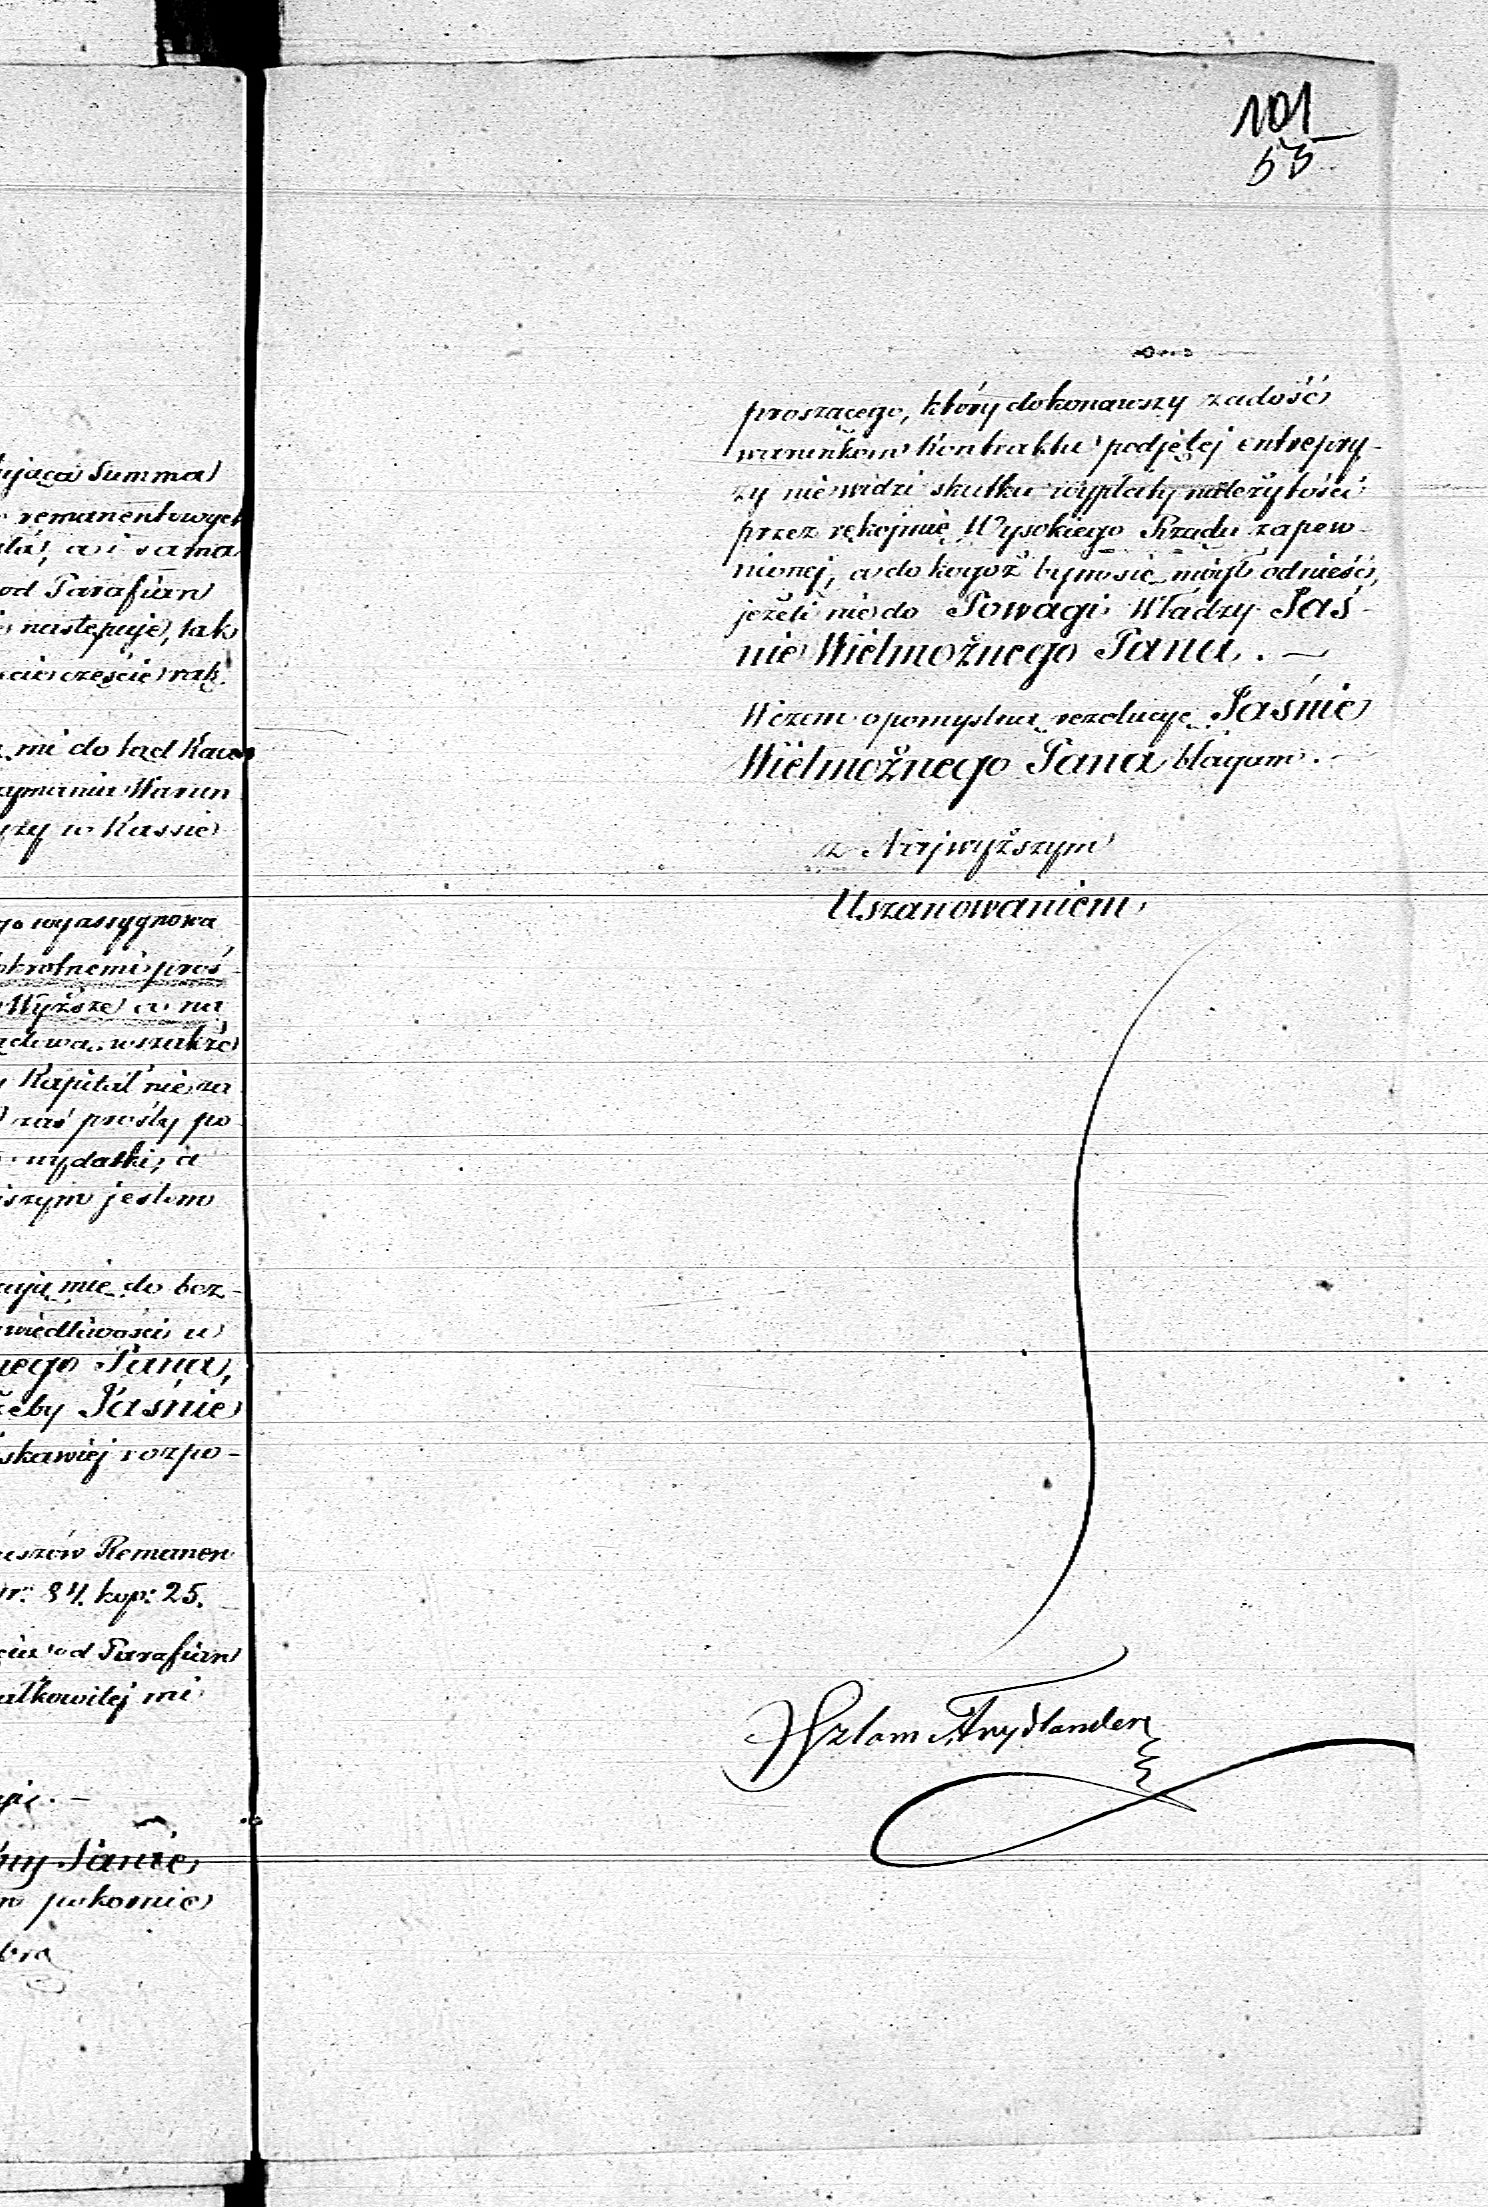 101
53
proszącego, który dokonawszy zadość
warunkom Kontraktu podjętej entrepry-
zy nie widzi skutku wypłaty należytości
przez rękojmię Wysokiego Rządu zapew-
nionej, a do kogoż bym się mógł odnieść,
jeżeli nie do Powagi Władzy Jaś-
nie Wielmożnego Pana. —
Wczem o pomyślną rezolucyę Jaśnie
Wielmożnego Pana błagam. —
z Najwyższym
Uszanowaniem
Szlam Frydlander
ująca Summa
remanentowych
a i sama
od Parafian
następuje, tak
części rąk
mi do tąd Kau
zymania Warun
zy w Kassie
go wyassygnowa
okrotnemi proś
Wyższe a na
wszakże
Kapitał nie za
zaś prośby po
wydatki, a
szym jestem
ają mię do bez-
wiedliwości u
nego Pana,
żeby Jaśnie
skawiej rozpo-
uszów Remanen
r: 84. kop: 25.
od Parafian
ałkowitej mi
ny Panie
pokornie